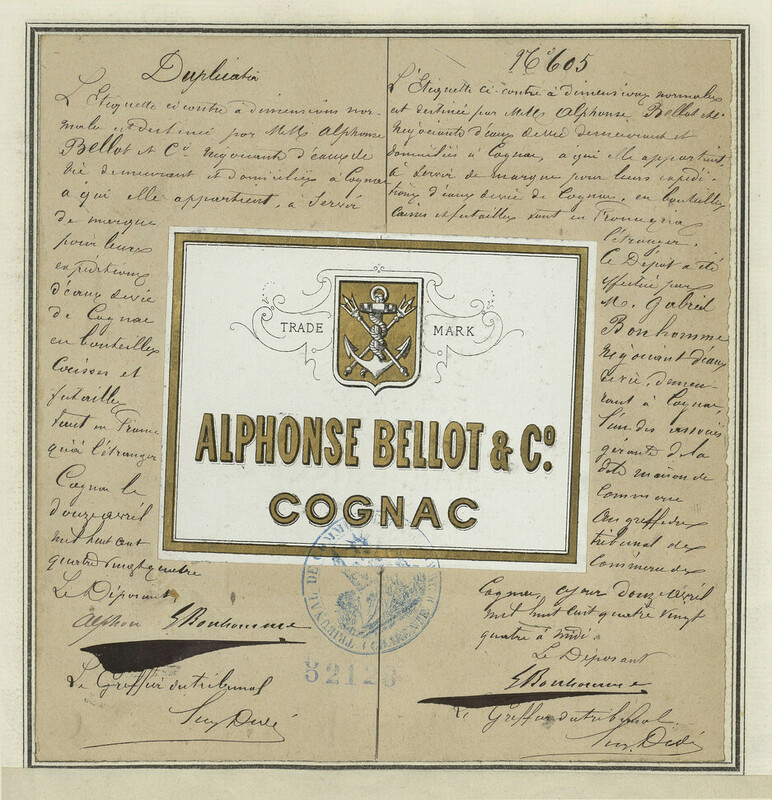 Duplicata
L'Etiquette ci contre à dimensions nor-
male est destinée par MM Alphonse
Bellot et Co Négociants d'eaux de
vie demeurant et domiciliés à Cognac
à qui elle appartient, à servir
de marque
pour leurs
expéditions
d'eaux de vie
de Cognac
en bouteilles
Caisses et
futailles
tant en France
qu'à l'étranger
Cognac le
douze avril
mil huit cent
quatre vingt quatre
Le Déposant
Alphon G Bonhomme
Le Greffier du tribunal
No 605
L'Etiquette ci-contre à dimensions normales
est destinée par MM. Alphonse Bellot et Co
négociants d'eaux de vie demeurant et
domiciliés à Cognac, à qui elle appartient,
à servir de marque pour leurs expédi-
tions d'eaux de vie de Cognac, en bouteilles
Caisses et futailles tant en France qu'à
l'étranger.
Ce Dépôt a été
effectué par
M. Gabriel
Bonhomme
négociant d'eaux
de vie, demeu-
rant à Cognac,
l'un des associés
gérants de la
dite maison de
Commerce
au greffe du
tribunal de
Commerce de
Cognac, ce jour douze avril
mil huit cent quatre vingt
quatre à midi
Le Déposant
G Bonhomme
Le Greffier du tribunal.
TRADE MARK
ALPHONSE BELLOT & Co.
COGNAC
TRIBUNAL DE COMM